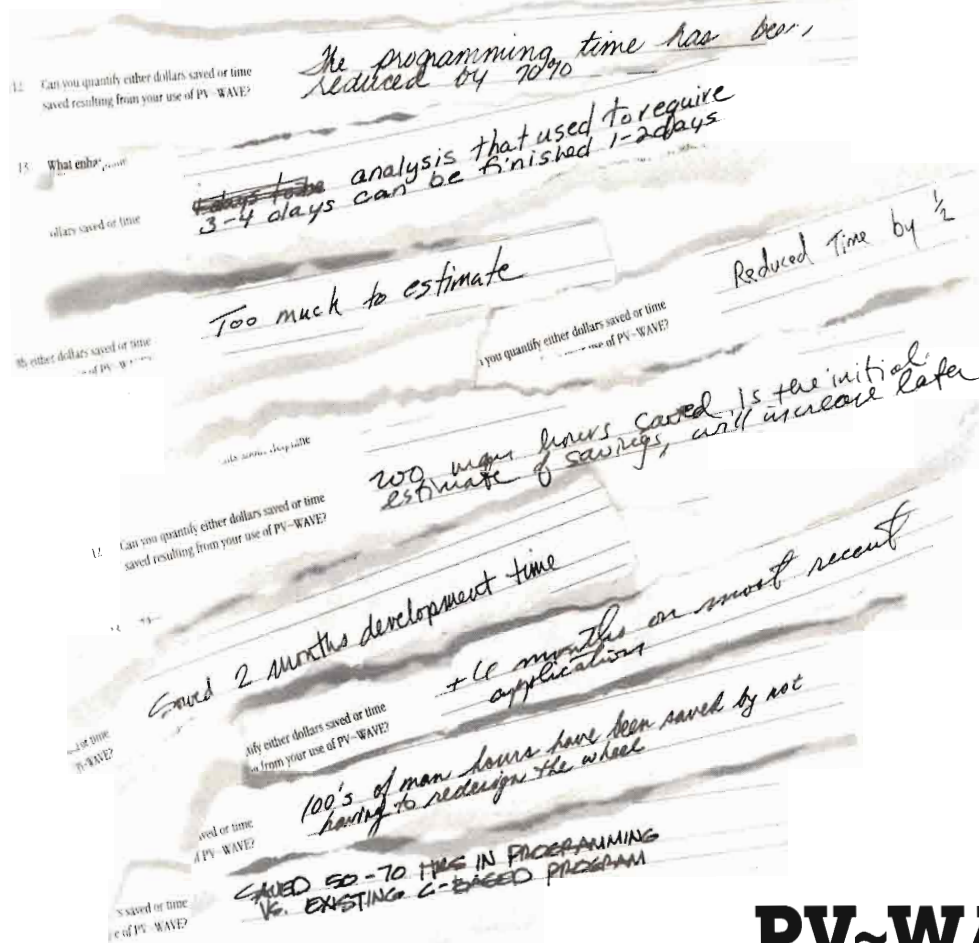 The programming time has been,
reduced by 70%
12. Can you quantify either dollars saved or time
saved resulting from your use of PV~WAVE?
13. What
analysis that used to require
3-4 days can be finished 1-2 days
dollars saved or time
Too much to estimate
Reduced Time by 1/2
either dollars saved or time
of PV~W
you quantify either dollars saved or time
use of PV~WAVE?
200 man hours saved is the initial
estimate of savings, will increase later
12. Can you quantify either dollars saved or time
saved resulting from your use of PV~WAVE?
Saved 2 months development time
months on most recent
application
time
WAVE?
ify either dollars saved or time
from your use of PV~WAVE?
100's of man hours have been saved by not
having to redesign the wheel
ved or time
PV~WAVE?
SAVED 50-70 HRS IN PROGRAMMING
VS. EXISTING C-BASED PROGRAM
's saved or time
e of PV~WAVE?
PV~WA